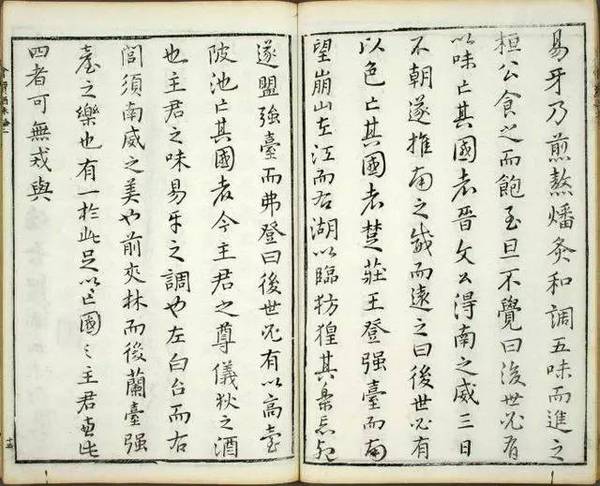 易牙乃煎熬燔炙和調五味而進之
桓公食之而飽至旦不覺曰後世必有
以味亡其國者晉文公得南之威三日
不朝遂推南之威而遠之曰後世必有
以色亡其國者楚莊王登强臺而南
望崩山左江而右湖以臨彷徨其樂忘死
遂盟強臺而弗登曰後世必有以高臺
陂池亡其國者今主君之尊儀狄之酒
也主君之味易牙之調也左白台而右
閭須南威之美也前夾林而後蘭臺强
臺之樂也有一於此足以亡國主君兼此
四者可無戒與